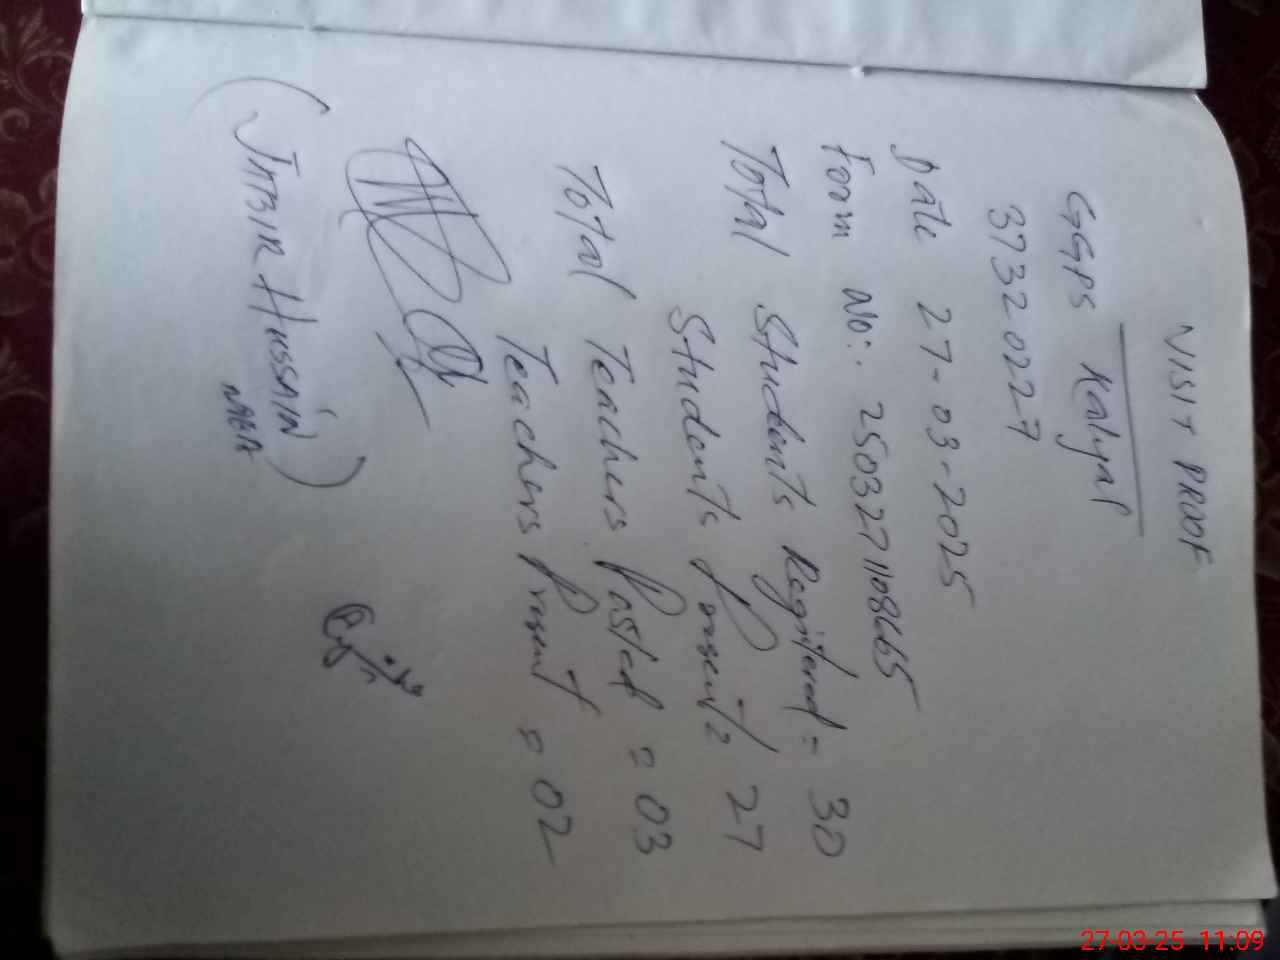 VISIT PROOF
GGPS Kalyal
37320227
Date 27-03-2025
Form No:. 2503271108665
Total Students Registered = 30
Students Present = 27
Total Teachers Posted = 03
Teachers Present = 02
(JABIR HUSSAIN)
27-03-25 11:09